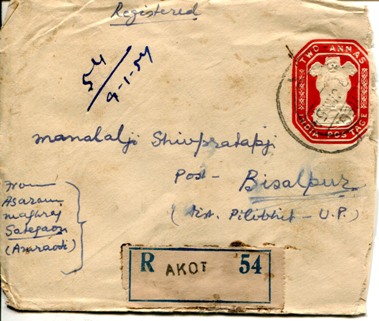 Registered
54
9-1-54
TWO ANNAS
INDIA POSTAGE
Manalalji Shivpratapji
Post- Bisalpur
(Dist. Pilibhit - U.P.)
From
Asaram
Maharaj
Sategaon
(Amraoti)
R AKOT 54